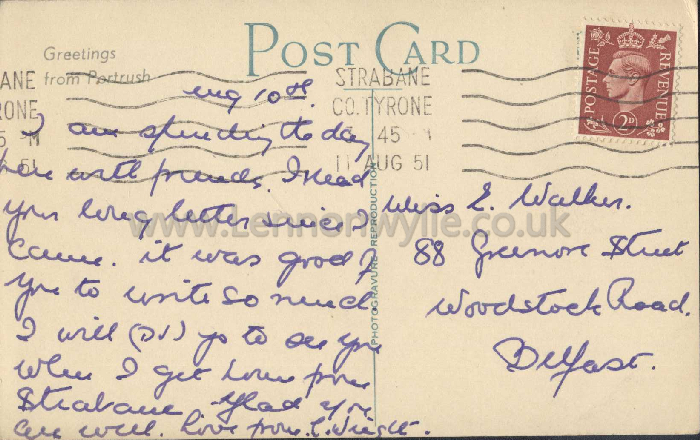 POST CARD
Greetings
from Portrush
STRABANE
CO. TYRONE
45
11 AUG 51
ANE
RONE
5 M
51
POSTAGE
REVENUE
2D
Aug 10th.
I am spending the day
here with friends. I read
your long letter since I
came. it was good of
you to write so much
I will (DV) go to see you
when I get home from
Strabane. Glad you
are well. Love from
Miss E. Walker.
88 Greenore Street
Woodstock Road.
Belfast.
PHOTOGRAVURE REPRODUCTION
www.Lennonwylie.co.uk